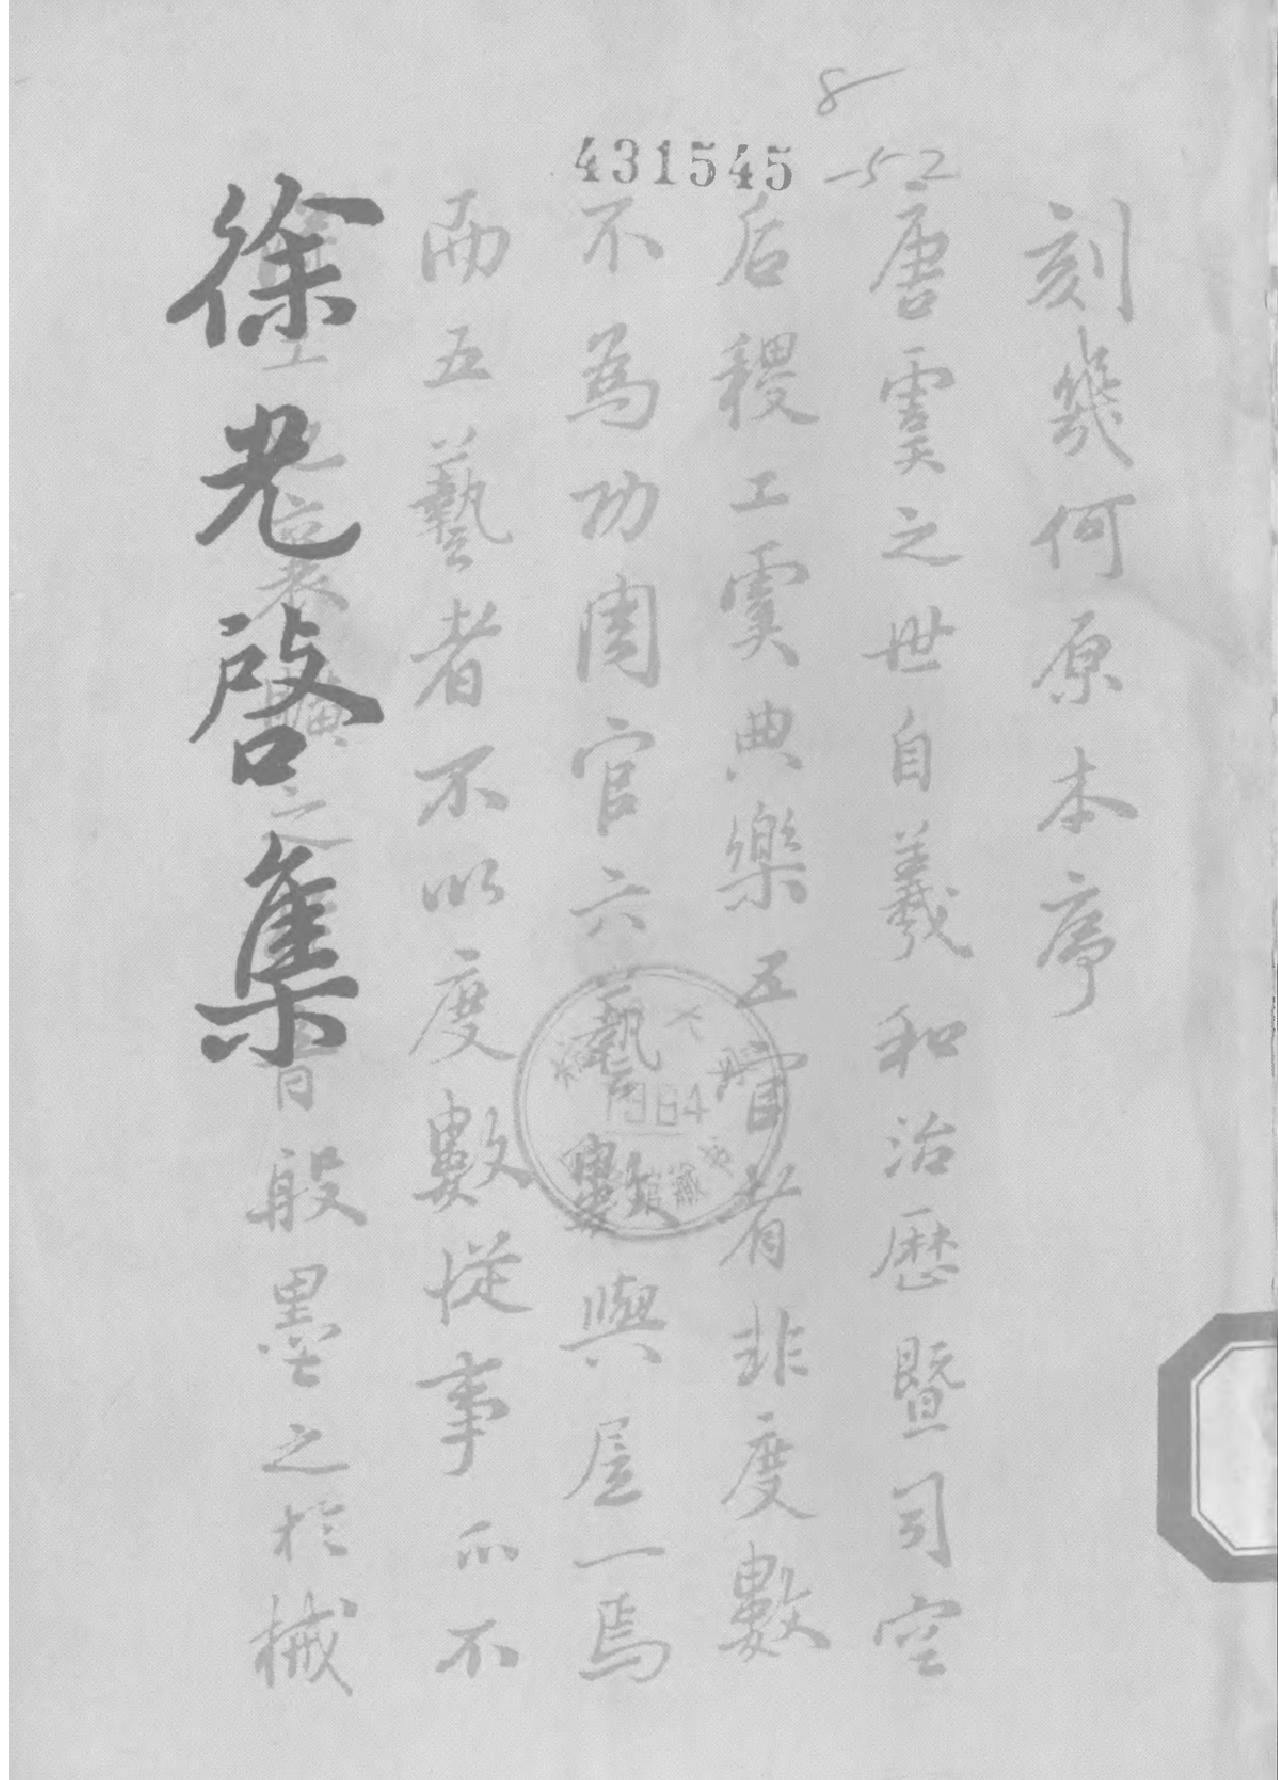 8
-52
431545
刻幾何原本序
唐虞之世自羲和治歷暨司空
后稷工虞典樂五官者非度數
不為功周官六藝數與居一焉
而五藝者不以度數從事亦不
工也襄曠之音般墨之於械
徐光啓集
1984
館藏